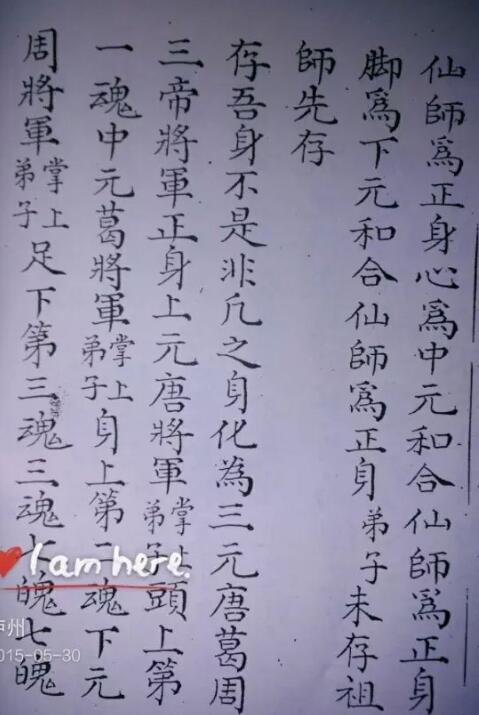 仙師爲正身心爲中元和合仙師爲正身
脚爲下元和合仙師爲正身弟子未存祖
師先存
存吾身不是非凡之身化為三元唐葛周
三帝將軍正身上元唐將軍掌上弟子頭上第
一魂中元葛將軍掌上弟子身上第二魂下元
周將軍掌上弟子足下第三魂三魂七魄七魄
I am here.
州
015-05-30